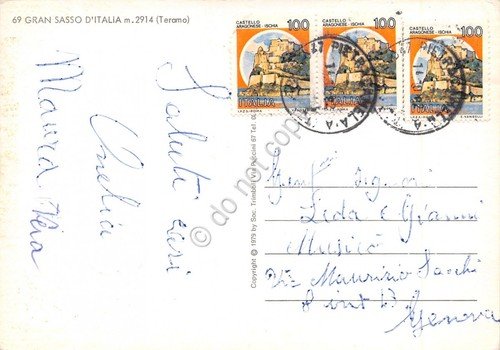 69 GRAN SASSO D'ITALIA m. 2914 (Teramo)
Saluti
Amelia
Maura
Copyright © 1979 by Soc. Trimboli Via Puccini 67 Tel.
CASTELLO 100
ARAGONESE - ISCHIA
ITALIA
CASTELLO 100
ARAGONESE - ISCHIA
ITALIA
CASTELLO 100
ARAGONESE - ISCHIA
ITALIA
do not copy
Gent. Sig.ri
Leda e Gianni
Musicò
Via Maurizio Sacchi
8 int 13
Genova